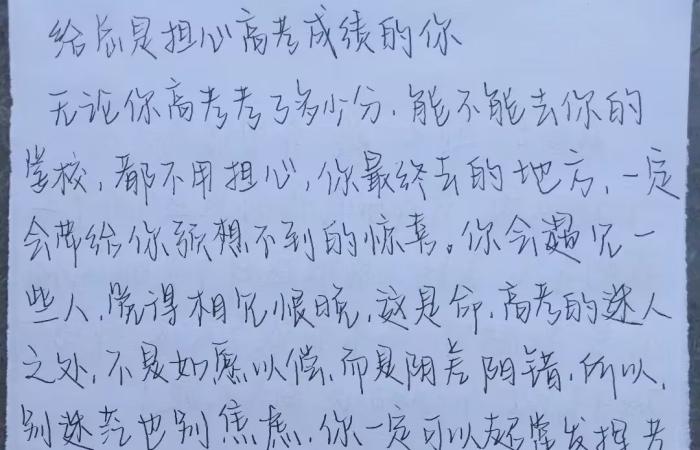 给总是担心高考成绩的你
无论你高考考了多少分，能不能去你的
学校，都不用担心，你最终去的地方，一定
会带给你预想不到的惊喜。你会遇见一
些人，觉得相见恨晚，这是命，高考的迷人
之处，不是如愿以偿，而是阴差阳错，所以，
别迷茫也别焦虑，你一定可以超常发挥考